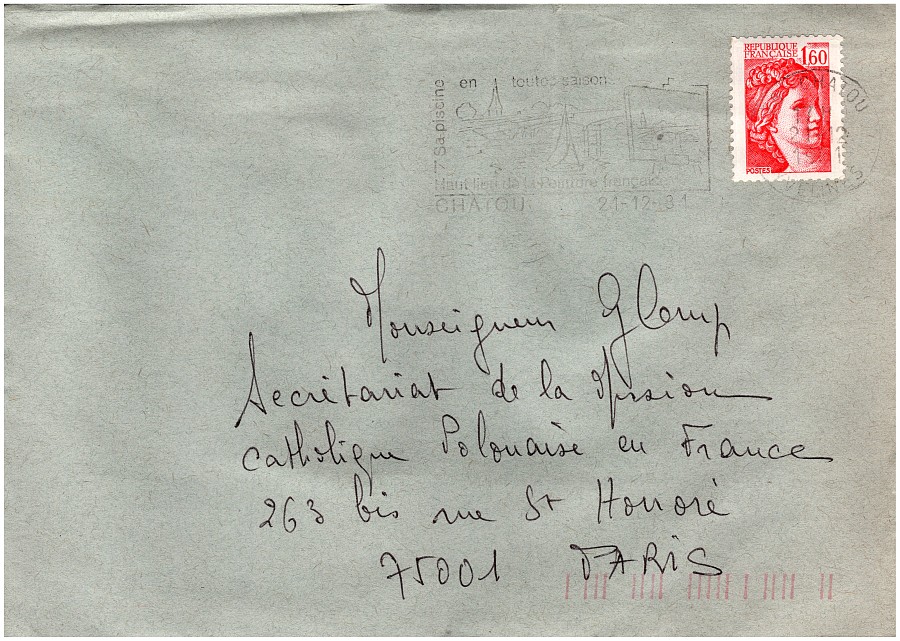 REPUBLIQUE
FRANÇAISE 1,60
POSTES
CHATOU
YVELINES
78 Sa piscine en toutes saisons
Haut lieu de la Peinture française
CHATOU 21-12-81
Monseigneur Glemp
Secrétariat de la Mission
catholique Polonaise en France
263 bis rue St Honoré
75001 PARIS